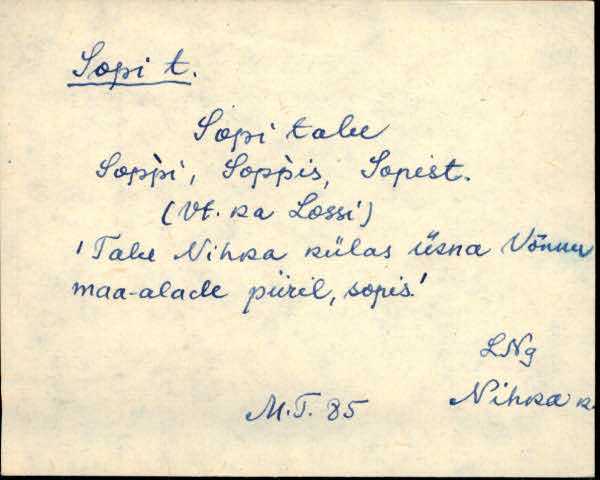 Sopi t.
Sopi talu
Sopp̀i, Sopp̀is, Sopist.
(Vt. ka Lossi)
'Talu Nihka külas üsna Võnnu
maa-alade piiril, sopis.'
LNg
Nihka k.
M.T. 85